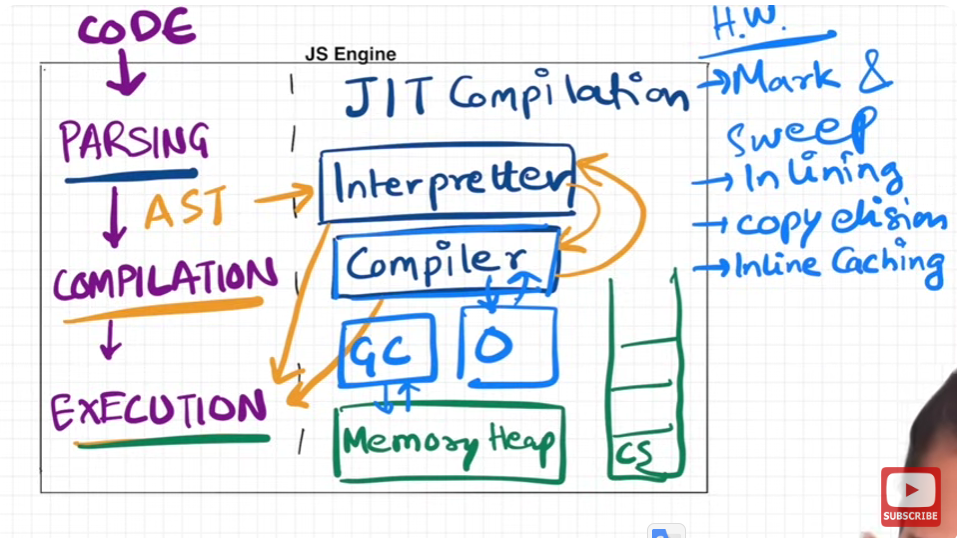 CODE
PARSING
AST
COMPILATION
EXECUTION
JS Engine
JIT Compilation
Interpretter
Compiler
GC
O
Memory Heap
CS
H.W.
→ Mark &
sweep
→ Inlining
→ copy elision
→ Inline Caching
SUBSCRIBE